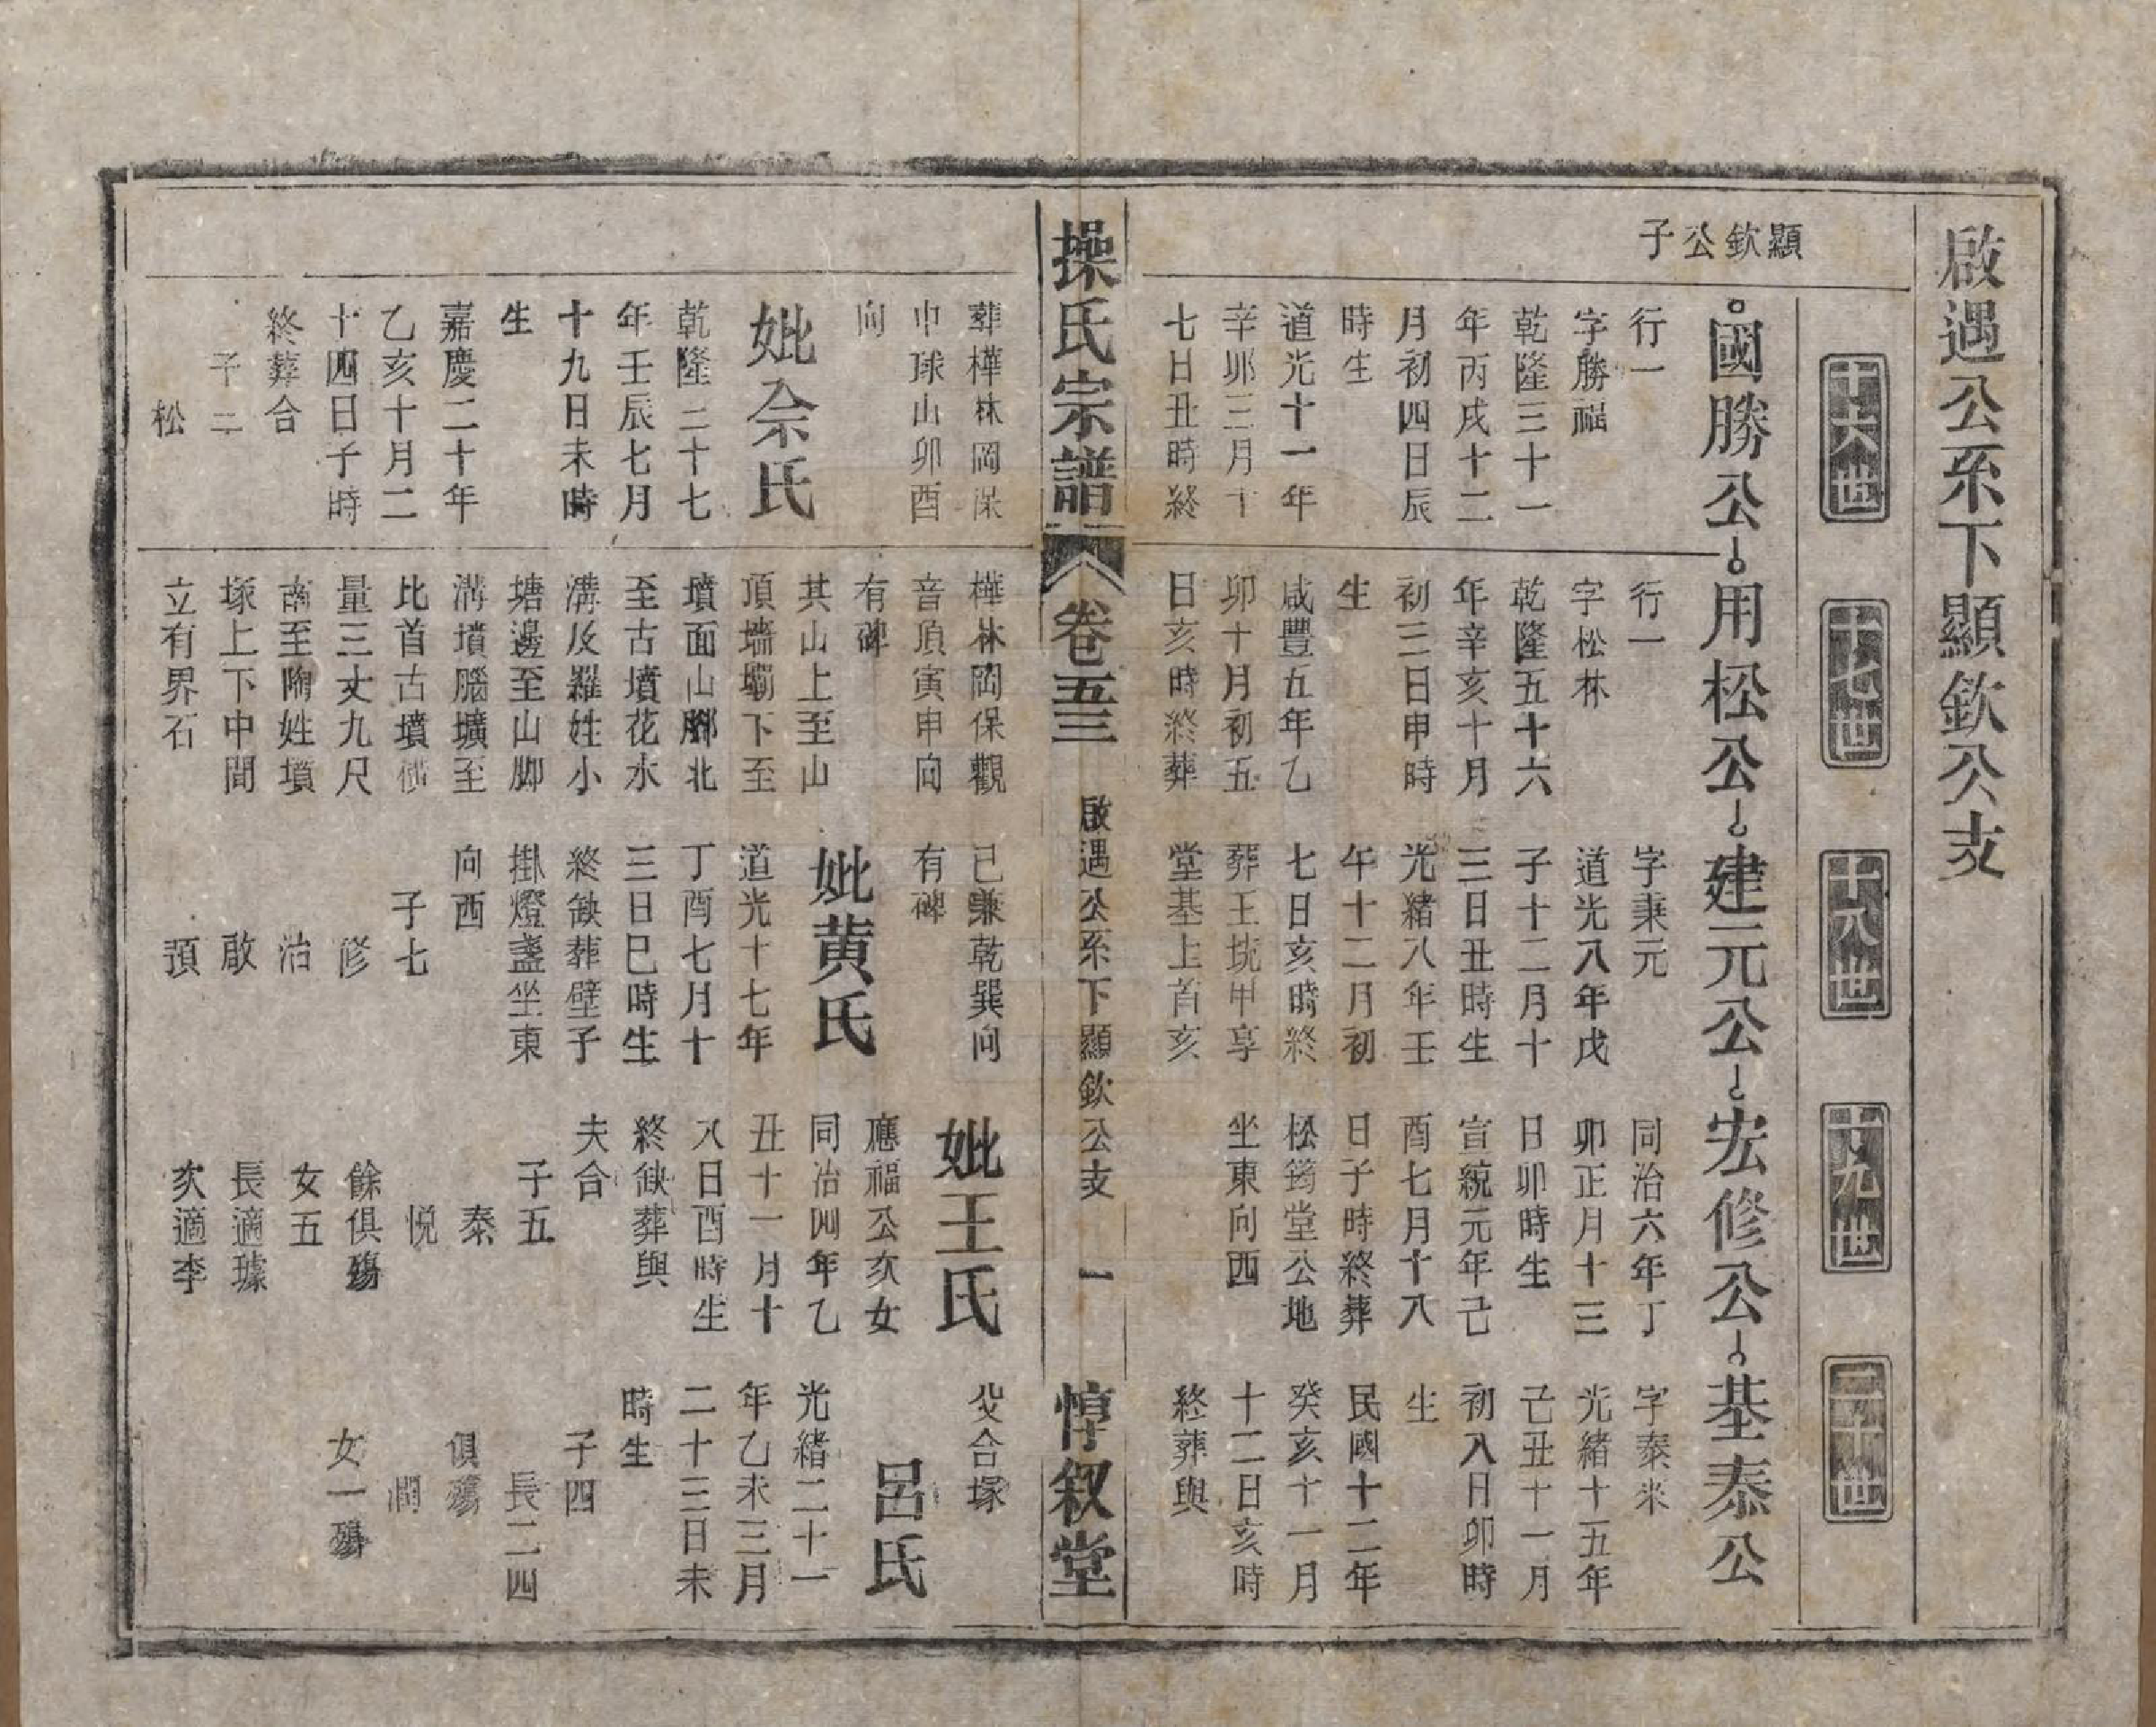 啟遇公系下顯欽公支
十六世
十七世
十八世
十九世
二十世
顯欽公子
國勝公
行一
字勝福
乾隆三十一
年丙戌十二
月初四日辰
時生
道光十一年
辛卯三月十
七日丑時終
用松公
行一
字松林
乾隆五十六
年辛亥十月
初三日申時
生
咸豐五年乙
卯十月初五
日亥時終葬
建元公
字秉元
道光八年戊
子十二月十
三日丑時生
光緒八年壬
午十二月初
七日亥時終
葬王坑甲享
堂基上首亥
宏修公
同治六年丁
卯正月十三
日卯時生
宣統元年己
酉七月十八
日子時終葬
松筠堂公地
坐東向西
基泰公
字泰來
光緒十五年
己丑十一月
初八日卯時
生
民國十二年
癸亥十一月
十二日亥時
終葬與
操氏宗譜
卷五三
啟遇公系下顯欽公支
一
惇敘堂
葬樺林岡保
中球山卯酉
向
妣佘氏
乾隆三十七
年壬辰七月
十九日未時
生
嘉慶二十年
乙亥十月二
十四日子時
終葬合
子二
松
樺林岡保觀
音頂寅申向
有碑
其山上至山
頂墻壩下至
墳面山腳北
至古墳花水
溝及羅姓小
塘邊至山脚
溝墳腦壙至
比首古墳
量三丈九尺
南至陶姓墳
塚上下中間
立有界石
己兼乾巽向
有碑
妣黃氏
道光十七年
丁酉七月十
三日巳時生
終缺葬壁子
掛燈盞坐東
向西
子七
修
治
啟
預
妣王氏
應福公次女
同治四年乙
丑十一月十
八日酉時生
終缺葬與
夫合
子五
泰
悦
餘俱殤
女五
長適璩
次適李
父合塚
呂氏
光緒二十一
年乙未三月
二十三日未
時生
子四
長二四
俱殤
潤
女一殤